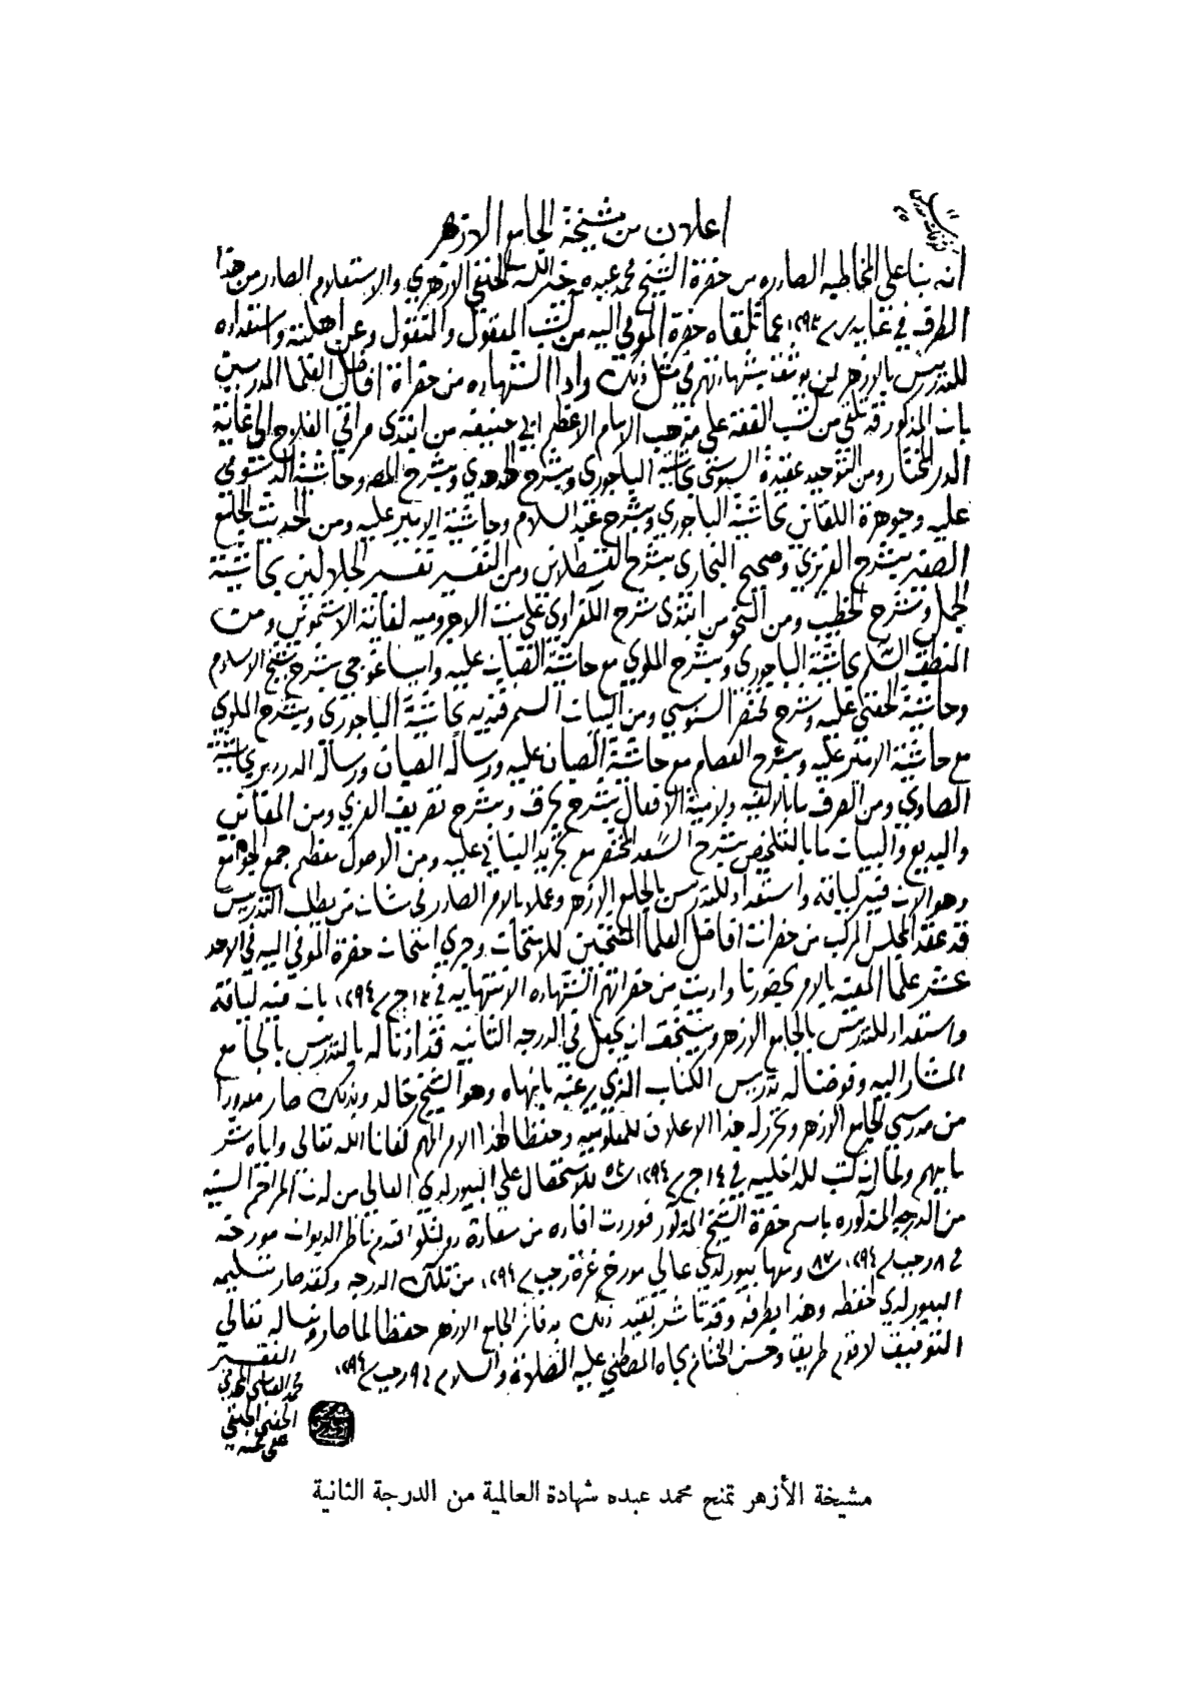 اعلان من مشيخة الجامع الازهر
انه بنا على المخاطبه الصادره من حضرة الشيخ محمد عبده خير الله الحنفي الازهري والاستعلام الصادر من هذا
الطرف في غايه عما تلقاه حضرة المومى اليه من كتب المعقول والمنقول وعن اهليته واستعداده
للتدريس بالازهر لمن يوثق بشهادتهم في مثل ذلك واذا الشهاده من حضرات افاضل العلما المدرسين
بان المذكور قد تلقى من كتب الفقه على مذهب الامام الاعظم ابي حنيفه من ابتدى مراقي الفلاح الى غاية
الدر المختار ومن التوحيد عقيدة السنوسى بحاشية الباجوري وبشرح الهدهدي وبشرح المصـ وحاشية الدسوقي
عليه وجوهرة اللقانى بحاشية الباجوري وبشرح عبد السلام وحاشية الامير عليه ومن الحديث الجامع
الصغير بشرح العزيزي وصحيح البخارى بشرح القسطلانى ومن التفسير تفسير الجلالين بحاشية
الجمل وشرح الخطيب ومن النحو من ابتدى شرح الكفراوي على متن الاجروميه لغاية الاشمونى ومن
المنطق السلم بحاشية الباجورى وبشرح الملوي مع حاشية الصبان عليه وايساغوجى بشرح شيخ الاسلام
وحاشية الحفني عليه وشرح مختصر السنوسي ومن البيان السمرقنديه بحاشية الباجورى وبشرح الملوي
مع حاشية الامير عليه وبشرح العصام مع حاشية الصبان عليه ورسالة الصبان ورسالة الدردير بحاشية
الصاوي ومن الصرف ما بالالفيه ولامية الافعال بشرح بحرق وشرح تصريف العزي ومن المعانى
والبديع والبيان ما بالتلخيص بشرح السعد المختصر مع تجريد البناني عليه ومن الاصول معظم جمع الجوامع
وهو الان فيه لياقه واستعداد للتدريس بالجامع الازهر وعملا بالامر الصادر في شان من يطلب التدريس
قد عقد المجلس المركب من حضرات افاضل العلما الممتحنين للامتحان وجرى امتحان حضرة المومى اليه في الاحد
عشر علما المعينه بالامر بحضورنا واديت من حضراتهم الشهاده الانتهاييه في ١٣ ج سنة ١٢٩٤ بان فيه لياقة
واستعداد للتدريس بالجامع الازهر ويستحق ان يجعل في الدرجه الثانيه فقد اذناله بالتدريس بالجامع
المشار اليه وفوضناله تدريس الكتاب الذي رغبه بانهاه وهو الشيخ خالد وبذلك صار معدودا
من مدرسي الجامع الازهر وتحرر له هذا الاعلان للمعلوميه وحفظا لهذا الامر المهم كفانا الله تعالى واياه شر
ما يهم ولما ان كتب للداخليه في ١٤ ج سنة ١٢٩٤ للاستحصال على البيورلدي العالي من لدن المراحم السنيه
من الدرجه المذكوره باسم حضرة الشيخ المذكور فوردت افاده من سعادة دولتلو افندم ناظر الديوان مورخه
في ٨ رجب سنة ١٢٩٤ ومعها بيورلدي عالي مورخ غرة رجب سنة ١٢٩٤ من تلك الدرجه وكقد صار تسليمه
البيورلدي لحفظه وهذا بطرفه وقد تاشر بقيد ذلك بدفاتر الجامع الازهر حفظا لما صار ونساله تعالى
التوفيق لاقوم طريقا وحسن الختام بجاه المصطفى عليه الصلاة والسلام في ٩ رجب سنة ١٢٩٤
الفقير
محمد العباسى المهدي
الحفني الحنفي
عفى عنه
مشيخة الأزهر تمنح محمد عبده شهادة العالمية من الدرجة الثانية